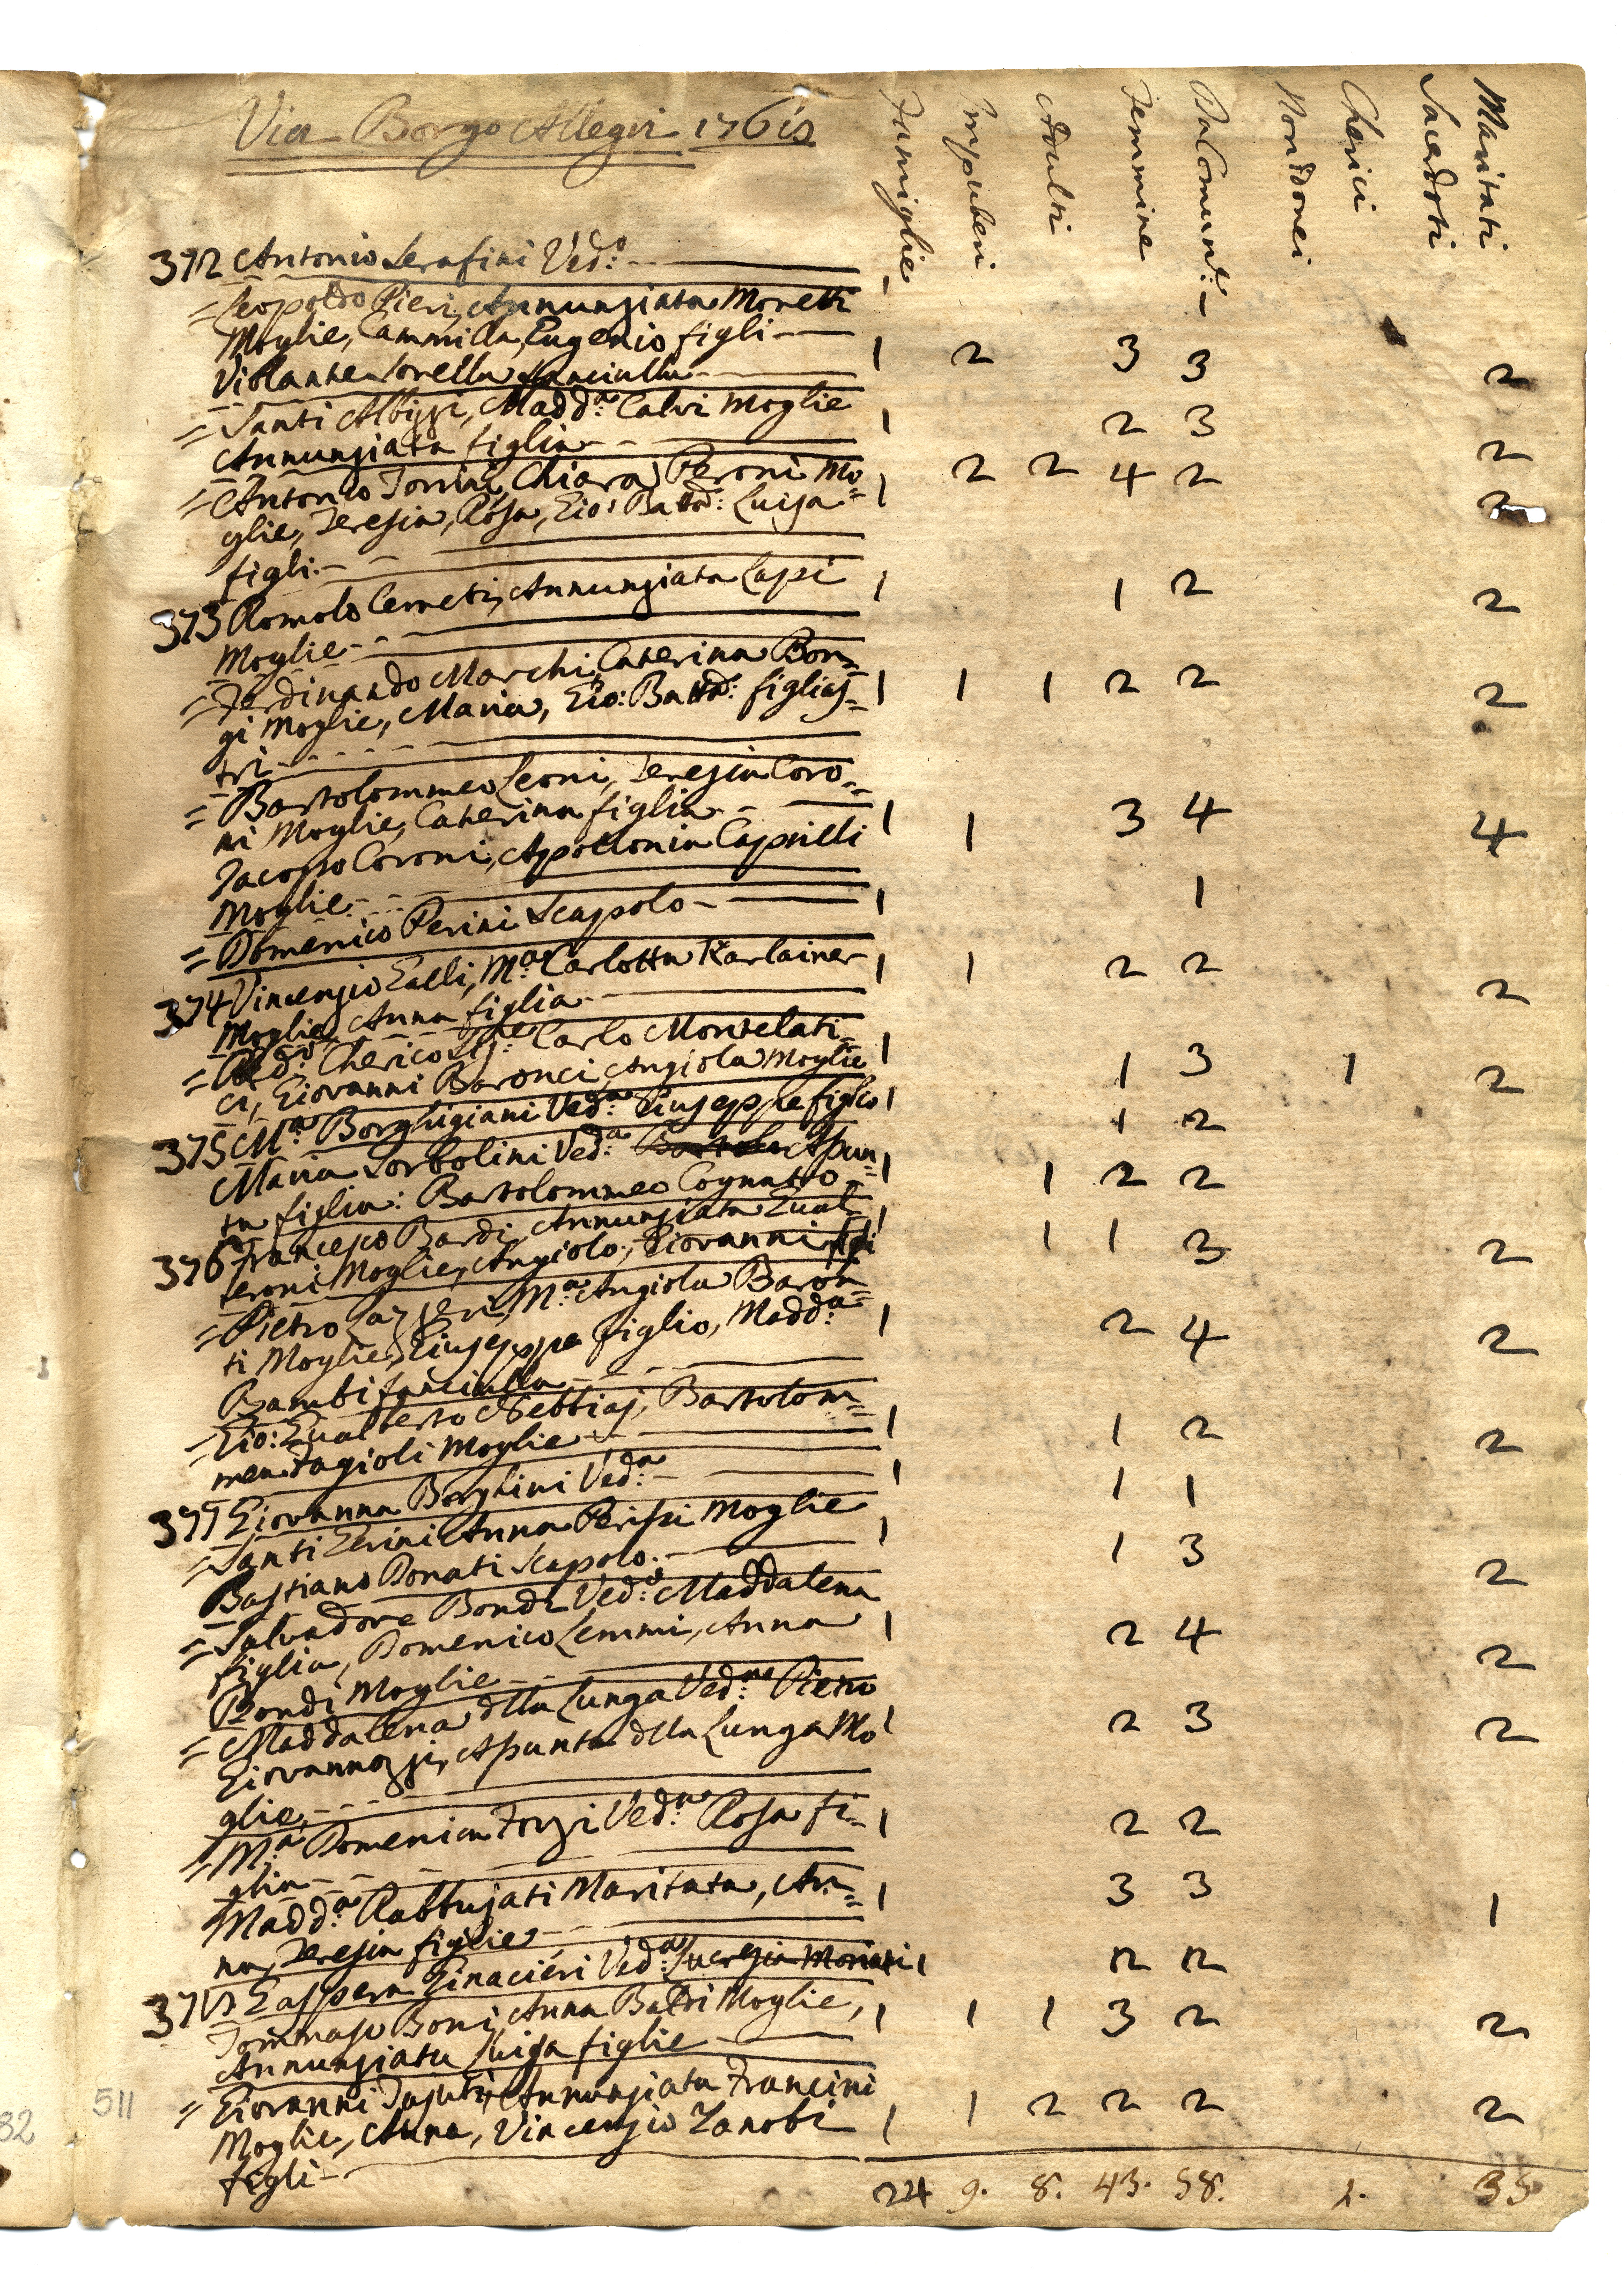 Via Borgo Allegri 1768
Famiglie Impuberi Adulti Femmine Da Comun.e Non Idonei Cherici Sacerdoti Maritati
372 Antonio Serafini Ved.o 1 1
= Leopoldo Pieri, Annunziata Moretti
Moglie, Cammilla, Eugenio figli 1 2 3 3 2
Violante Sorella fanciulla
= Santi Albizzi, Madd.a Calvi Moglie 1 2 3 2
Annunziata figlia
= Antonio Torrini, Chiara Peroni Mo= 1 2 2 4 2 2
glie, Teresia, Rosa, Gio: Batta: Luisa
figli
373 Romolo Cerreti, Annunziata Lapi 1 1 2 2
Moglie
= Ferdinando Marchi, Caterina Bor=
gi Moglie, Maria, Gio: Batta: figlias= 1 1 1 2 2 2
tri
= Bartolommeo Leoni, Teresia Coro=
ni Moglie, Caterina figlia 1 1 3 4 4
Jacopo Coroni, Apollonia Caprilli
Moglie
= Domenico Perini Scapolo 1 1
374 Vincenzio Galli, M.a Carlotta Karlainer 1 1 2 2 2
Moglie, Anna figlia
= Red.o Cherico Sig.re Carlo Montelati= 1 1 3 1 2
ci, Giovanni Baronci, Angiola Moglie
375 M.a Borghigiani Ved.a Giuseppe figlio 1 1 2
Maria Sorbolini Ved.a Assun= 1 1 2 2
ta figlia: Bartolommeo Cognato
376 Francesco Bardi, Annunziata Gual= 1 1 1 3 2
teroni Moglie, Angiolo, Giovanni figli
= Pietro Gasperi, M.a Angiola Baron
ti Moglie, Giuseppe figlio, Madd.a 1 2 4 2
Bambi fanciulla
= Gio: Gualberto Nebbiai, Bartolom= 1 1 2 2
mea Fagioli Moglie
377 Giovanna Borghini Ved.a 1 1 1
= Santi Gerini Anna Perissi Moglie 1 1 3 2
Bastiano Donati Scapolo
= Salvadore Bondi Ved.o Maddalena
figlia, Domenico Lemmi, Anna 1 2 4 2
Bondi Moglie
= Maddalena della Lunga Ved.a Pietro
Giovannozzi, Assunta della Lunga Mo 1 2 3 2
glie
= M.a Domenica Forzi Ved.a Rosa fi= 1 2 2
glia
Madd.a Rabbujati Maritata, An= 1 3 3 1
na, Teresia figlie
378 Gaspera Ginacieri Ved.a Lucrezia Moriani 1 2 2
Tommaso Boni, Anna Baldi Moglie, 1 1 1 3 2 2
Annunziata Luisa figlie
= Giovanni Tasuti, Annunziata Francini
Moglie, Anna, Vincenzio Zanobi 1 1 2 2 2 2
figli
24 9. 8. 43. 58. 1. 35
511
82